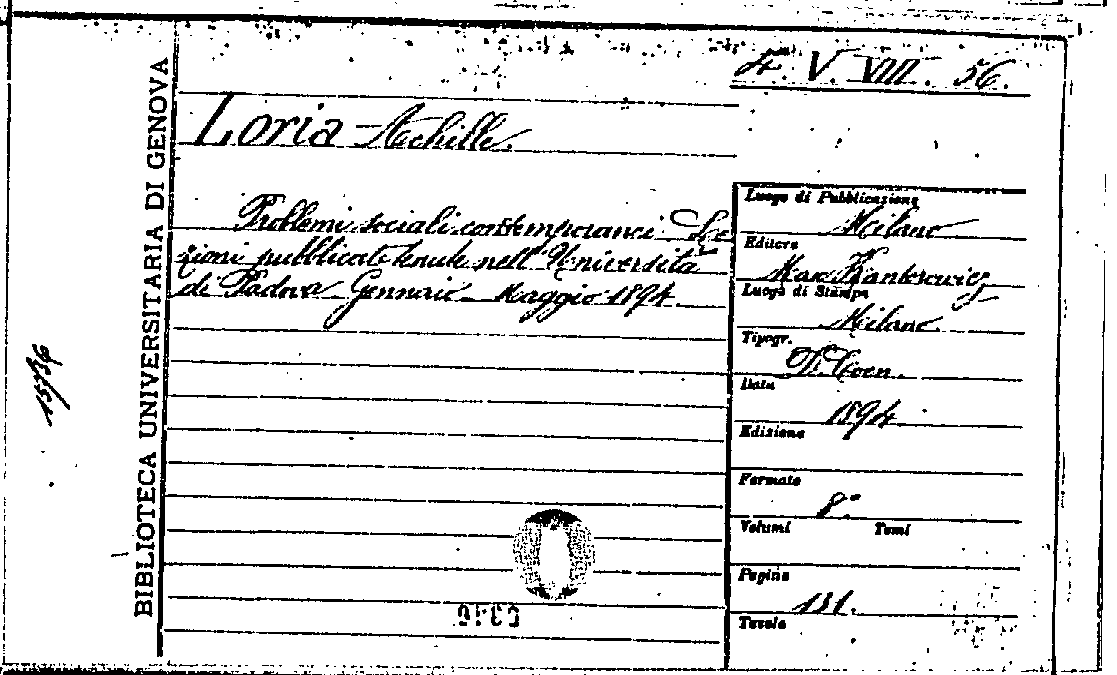 4. V. VIII. 56.
Loria Achille.
Problemi sociali contemporanei. Le
zioni pubblicate tenute nell'Università
di Padova Gennaio - Maggio 1894.
Luogo di Pubblicazione
Milano
Editore
Max Kantorowicz
Luogo di Stampa
Milano
Tipogr.
D. Coen.
Data
1894
Edizione
Formato
8°
Volumi Tomi
Pagine
131.
Tavole
BIBLIOTECA UNIVERSITARIA DI GENOVA